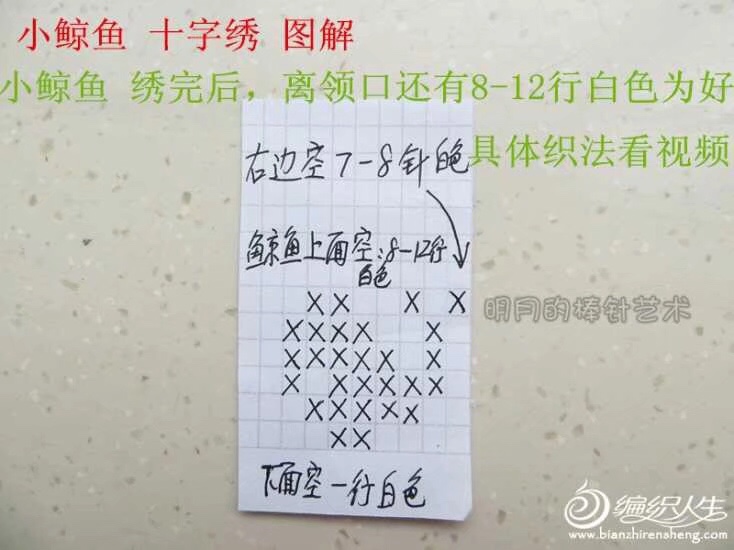 小鲸鱼 十字绣 图解
小鲸鱼 绣完后，离领口还有8-12行白色为好
具体织法看视频
右边空7-8针白色
鲸鱼上面空:8-12行
白色
XX X X
XXXX X
XXXXX X
X XXXXX
XXXXX
XX
下面空一行白色
明月的棒针艺术
编织人生
www.bianzhirensheng.com